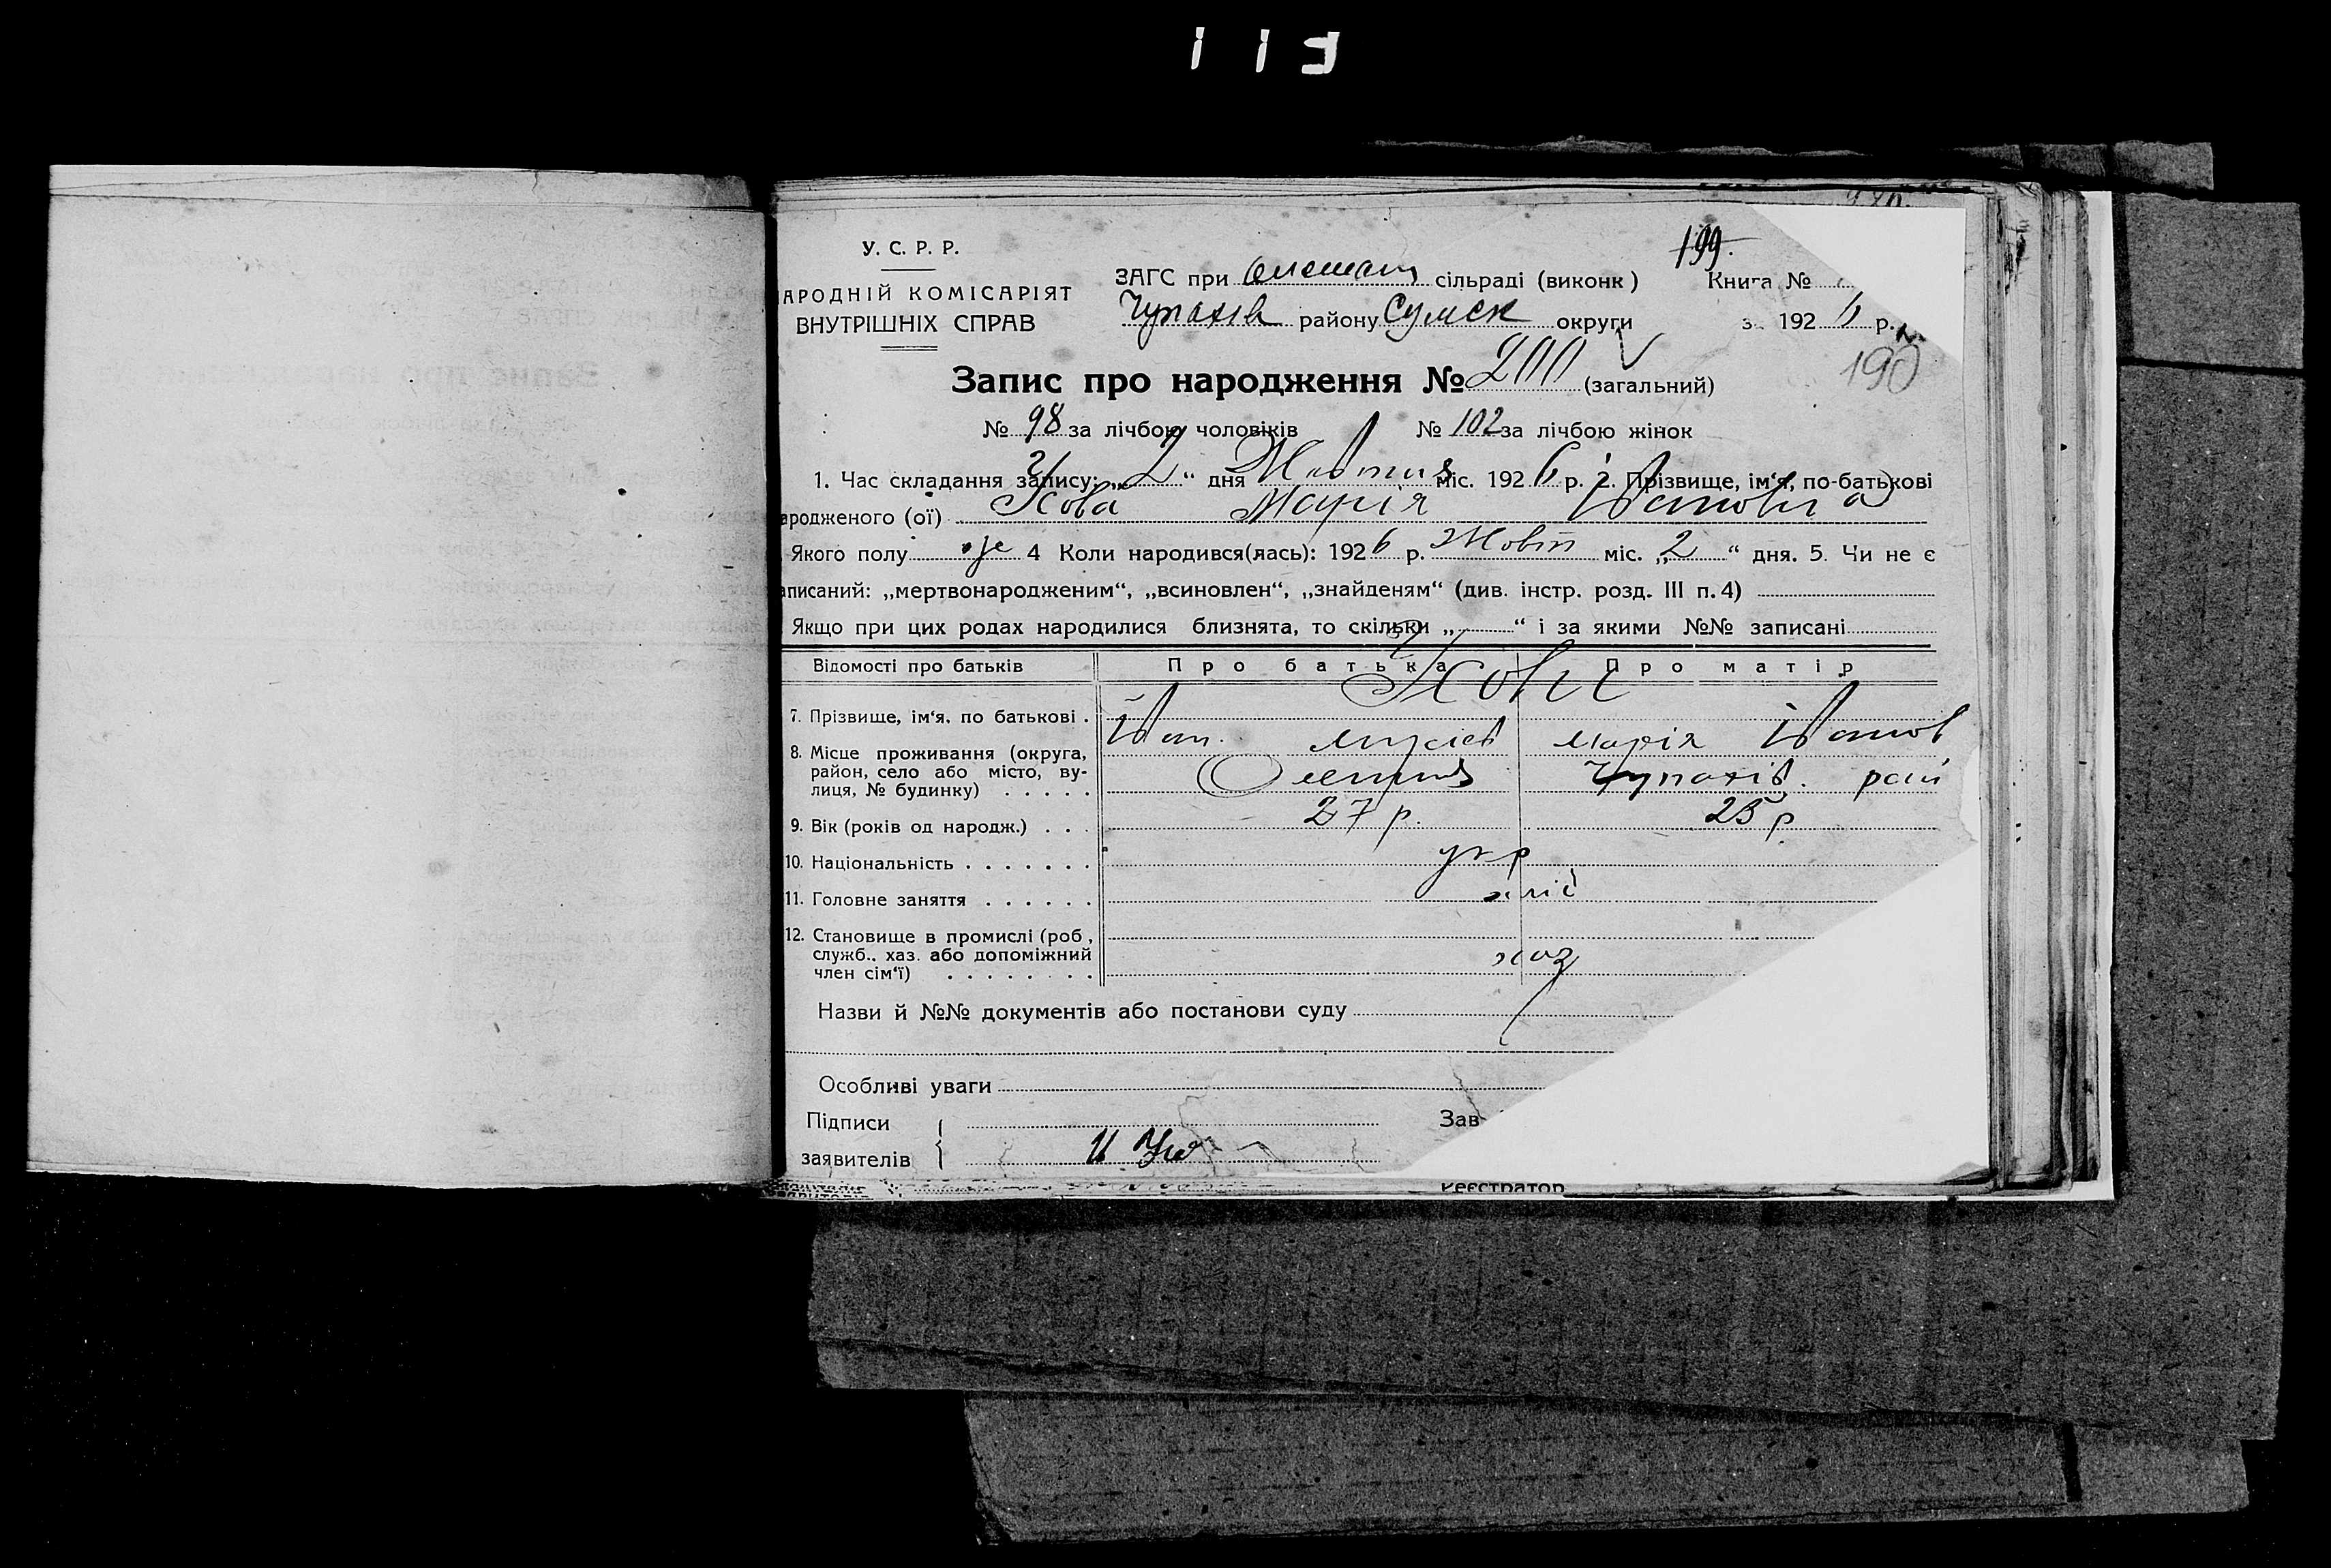 113
У. С. Р. Р.
АРОДНІЙ КОМІСАРІЯТ
ВНУТРІШНІХ СПРАВ
199.
ЗАГС при сільраді (виконк) Книга №
Чупахів району Сумск округи за 1926 р.
190
Запис про народження № 200 (загальний)
№ 98 за лічбою чоловіків № 102 за лічбою жінок
1. Час складання запису: „2“ дня Жовтня міс. 1926 р. 2. Прізвище, ім'я, по-батькові
ародженого (ої) Марія Івановна
Якого полу ж 4 Коли народився(лась): 1926 р. Жовт міс. „2“ дня. 5. Чи не є
аписаний: „мертвонародженим“, „всиновлен“, „знайденям“ (див. інстр. розд. III п. 4)
Якщо при цих родах народилися близнята, то скільки „ “ і за якими №№ записані
Відомості про батьків Про батька Про матір
7. Прізвище, ім'я, по батькові . Іван Марія Іванов
8. Місце проживання (округа, район, село або місто, ву-
лиця, № будинку) . . . . . Чупахів. рай
9. Вік (років од народж.) . . . 27 р. 25 р
10. Національність . . . . . . . укр
11. Головне заняття . . . . . . хліб
12. Становище в промислі (роб,
служб., хаз. або допоміжний
член сім'ї) . . . . . . . . хаз
Назви й №№ документів або постанови суду
Особливі уваги
Підписи Зав
заявителів
Реєстратор